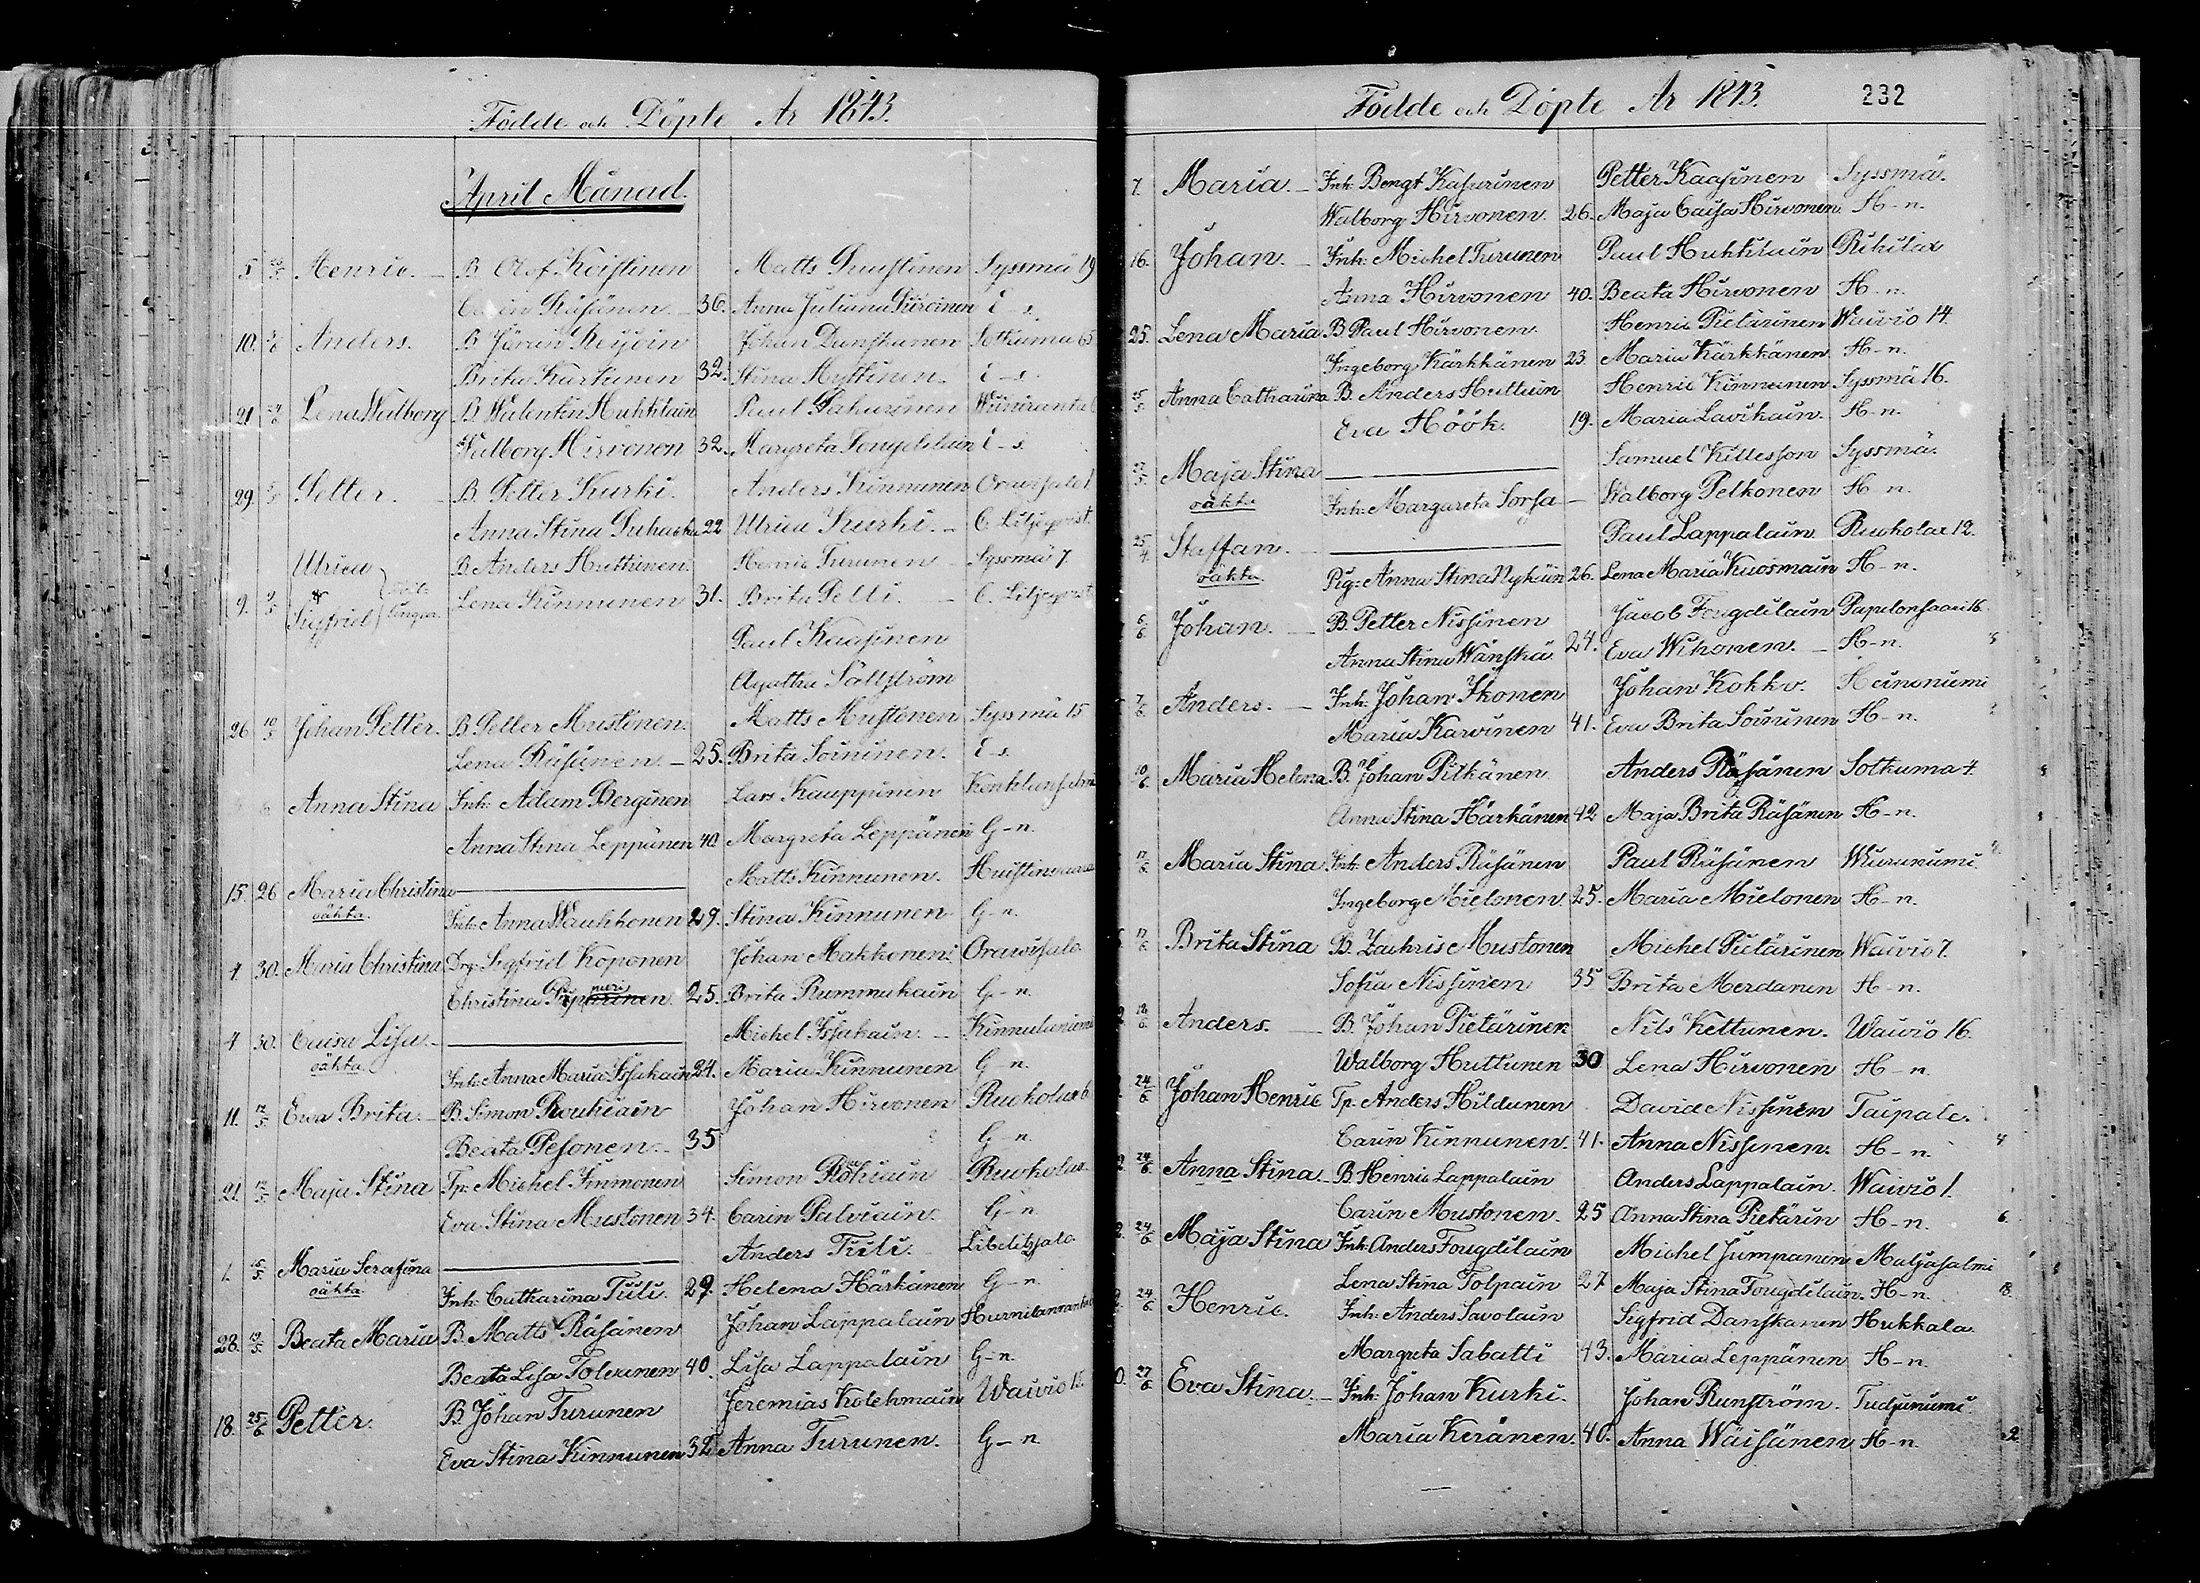 Födde och Döpte År 1843.
April Månad.
5. Henric. B Olof Koistinen Matts Puustinen Syssmä 19
Carin Räsänen 36. Anna Juliana Piiroinen E - s.
10. Anders. B Jöran Reijoin Johan Danskanen Sotkuma 65
Brita Kartunen 32. Stina Hyttinen. E - s.
21 Lena Walborg B. Walentin Hukklain Paul Sahurinen Wiiniranta
Walborg Hirvonen 32. Margreta Fougdelain E - s.
29. Petter. B Petter Kurki. Anders Kinnunen Oravisalo 1
Anna Stina Puhacka 22 Ulrica Kurki. C. Liljeqvist.
Ulrica B Anders Huttunen. Henric Turunen Syssmä 7
9. & Sigfrid Tvillingar. Lena Kinnunen 31. Brita Pelli. C. Liljeqvist
Paul Kaasinen
Agatha Sällström
26 Johan Petter. B Petter Mustonen. Matts Mustonen Syssmä 15
Lena Räsänen 25. Brita Soininen. E - s.
Anna Stina Inh: Adam Berginen Lars Kauppinen Kontilansalmi
Anna Stina Leppänen 40 Margreta Leppänen G - n.
15. 26 Maria Christina Matts Kinnunen. Huistinvaara
oäkta. Inh: Anna Waukkonen 29. Stina Kinnunen G - n.
4. 30. Maria Christina Drg Sigfrid Koponen Johan Makkonen. Oravisalo
Christina 25. Brita Rummukain G - n.
4 30. Caisa Lisa Michel Issakain. Kinnulaniemi
oäkta. Inh: Anna Maria Issakain 24. Maria Kinnunen G - n.
11. 12/5 Eva Brita B. Simon Rouhiain Johan Hirvonen Ruokolax 6
Beata Pesonen. 35 G - n.
21 12/5 Maja Stina Tp. Michel Immonen Simon Röhiain Ruokolax
Eva Stina Mustonen 34. Carin Palviain. G - n
1. 15/5 Maria Serafina Anders Tiili. Libelitzsalo
oäkta. Inh: Catharina Tiili. 29. Helena Härkänen G - n
28. 19/5 Beata Maria B. Matts Räsänen Johan Lappalain Hurnilanranta
Beata Lisa Tolvanen 40. Lisa Lappalain G - n.
18. 25/6 Petter. B Johan Turunen Jeremias Kolehmain Waivio 12
Eva Stina Kinnunen 32 Anna Turunen. G - n.
Födde och Döpte År 1843. 232
7. Maria Inh: Bengt Kasurinen Petter Kaasinen Syssmä.
Walborg Hirvonen. 26. Maja Caisa Hirvonen H - n.
16. Johan. Inh: Michel Turunen Paul Hukklain Rikilax
Anna Hirvonen 40. Beata Hirvonen H - n.
25. Lena Maria B Paul Hirvonen Henric Pietärinen Waivio 14.
Ingeborg Kärkkänen 23 Maria Kärkkänen H - n.
15/5 Anna Catharina B. Anders Huttuin Henric Kinnunen Syssmä 16.
Eva Höök. 19. Maria Lavikain. H - n.
27/5 Maja Stina Samuel Killesson Syssmä.
oäkta Inh: Margareta Sorsa Walborg Pelkonen H - n.
25/4 Staffan. Paul Lappalain Ruokolax 12.
oäkta. Pig: Anna Stina Nykäin 26. Lena Maria Kuosmain H - n.
6/6 Johan. B. Petter Nissinen Jacob Fougdilain Papelonsaari 16
Anna Stina Wänskä 24. Eva Wihonen. H - n.
7/6 Anders. Inh: Johan Ikonen Johan Kokko. Heinoniemi
Maria Karvinen 41. Eva Brita Soininen H - n.
10/6 Maria Helena B. Johan Pitkänen Anders Räsänen Sotkuma 4.
Anna Stina Härkänen 42 Maja Brita Räsänen H - n.
17/6 Maria Stina Inh: Anders Räsänen Paul Räsänen Wuruniemi
Ingeborg Mielonen. 25. Maria Mielonen H - n.
17/6 Brita Stina B. Zachris Mustonen Michel Pietärinen Waivio 7.
Sofia Nissinen 35 Brita Merdanen H - n.
18/6 Anders. B. Johan Pietärinen Nils Kettunen. Waivio 16.
Walborg Huttunen 30 Lena Hirvonen H - n.
24/6 Johan Henric Tp. Anders Hildunen David Nissinen Taipale.
Carin Kinnunen. 41. Anna Nissinen. H - n.
24/6 Anna Stina. B Henric Lappalain Anders Lappalain. Waivio 1.
Carin Mustonen. 25 Anna Stina Pietärin H - n.
24/6 Maja Stina Inh: Anders Fougdilain Michel Jumpanen Maljasalmi
Lena Stina Tolpain 27 Maja Stina Fougdilain. H - n.
24/6 Henric Inh: Anders Savolain Sigfrid Danskanen Hukkala.
Margreta Sabatti 43. Maria Leppänen H - n.
27/6 Eva Stina. Inh: Johan Kurki. Johan Runström. Tudjuniemi
Maria Keränen. 40. Anna Wäisänen H - n.